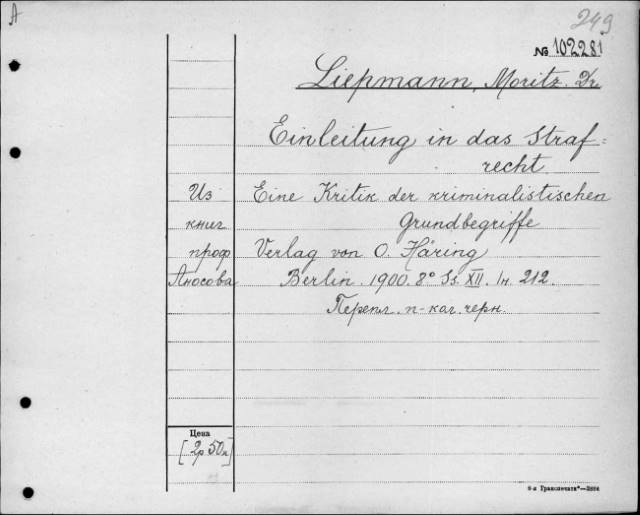 A
249
№ 102281
Liepmann, Moritz. Dr.
Einleitung in das Straf=
recht.
Из Eine Kritik der kriminalistischen
книг Grundbegriffe
проф Verlag von O. Häring
Аносова Berlin. 1900. 8° Ss. XII. 212.
Перепл. п-каг. черн.
Цена
[2р 50к]
6-я Гранпечать"—3894